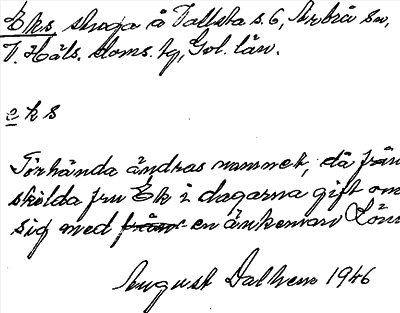 Eks skoga å Vallsta s. 6, Arbrå sn,
V. Häls. doms. tg, Gvl. län.
e k s
Förhända ändras namnet, då från
skilda fru Ek i dagarna gift om
sig med från en änkeman Lönn
August Dalhem 1946